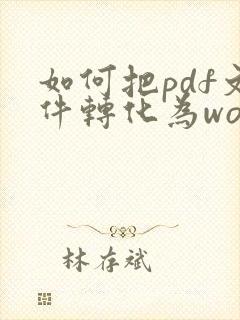 如何把pdf文
件轉化為wo
林存斌